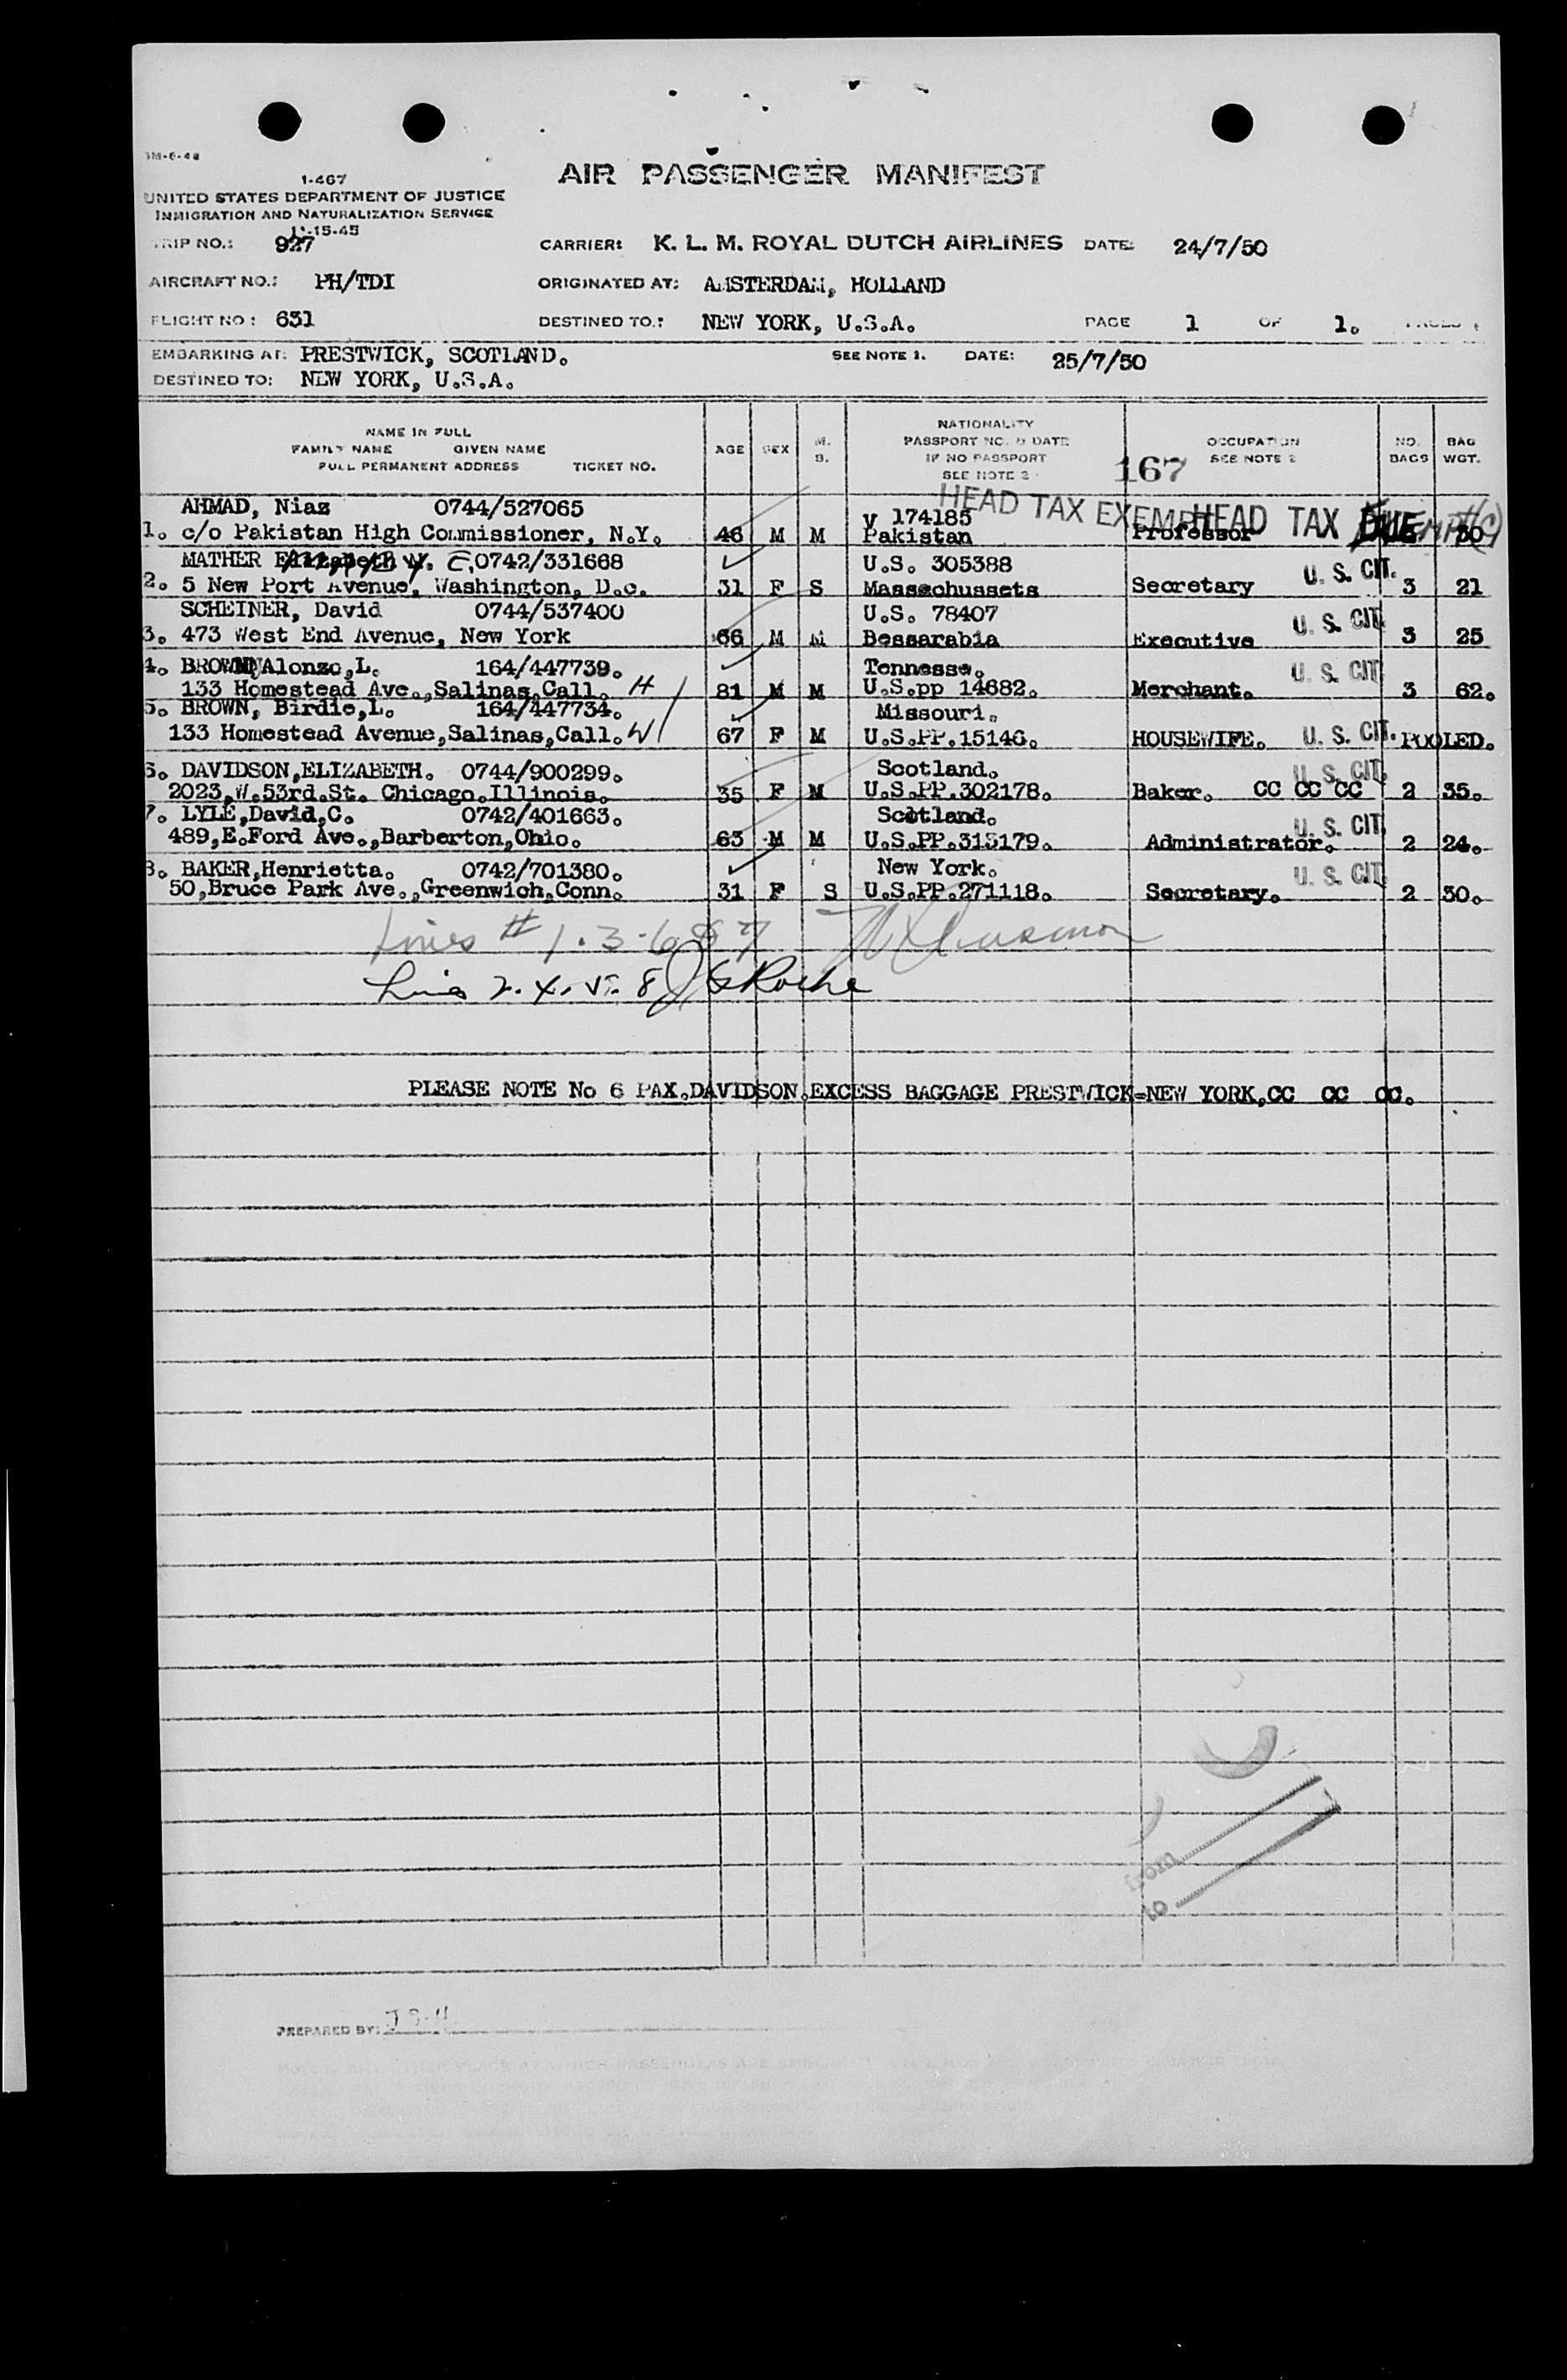 1-467
AIR PASSENGER MANIFEST
UNITED STATES DEPARTMENT OF JUSTICE
IMMIGRATION AND NATURALIZATION SERVICE
11-15-45
TRIP NO.: 927 CARRIER: K. L. M. ROYAL DUTCH AIRLINES DATE: 24/7/50
AIRCRAFT NO.: PH/TDI ORIGINATED AT: AMSTERDAM, HOLLAND
FLIGHT NO: 631 DESTINED TO.: NEW YORK, U.S.A. PAGE 1 OF 1. PAGES
EMBARKING AT: PRESTWICK, SCOTLAND. SEE NOTE 1. DATE: 25/7/50
DESTINED TO: NEW YORK, U.S.A.
NAME IN FULL
FAMILY NAME GIVEN NAME
FULL PERMANENT ADDRESS TICKET NO.
AGE SEX M. S.
NATIONALITY
PASSPORT NO. & DATE
IF NO PASSPORT
SEE NOTE 2
167
OCCUPATION
SEE NOTE 2
NO. BAGS
BAG WGT.
HEAD TAX EXEMPT HEAD TAX DUE
AHMAD, Niaz 0744/527065 V 174185
1. c/o Pakistan High Commissioner, N.Y. 46 M M Pakistan Professor 30
MATHER Elizabeth W. E. 0742/331668 U.S. 305388 U. S. CIT.
2. 5 New Port Avenue, Washington, D.c. 31 F S Massachussets Secretary 3 21
SCHEINER, David 0744/537400 U.S. 78407 U. S. CIT.
3. 473 West End Avenue, New York 66 M M Bessarabia Executive 3 25
4. BROWN, Alonzo,L. 164/447739. Tennesse. U. S. CIT.
133 Homestead Ave.,Salinas,Call. H 81 M M U.S.pp 14682. Merchant. 3 62.
5. BROWN, Birdie,L. 164/447734. Missouri.
133 Homestead Avenue,Salinas,Call. W 67 F M U.S.PP.15146. HOUSEWIFE. U. S. CIT. POOLED.
6. DAVIDSON,ELIZABETH. 0744/900299. Scotland. U. S. CIT.
2023,W.53rd.St. Chicago.Illinois. 35 F M U.S.PP.302178. Baker. CC CC CC 2 35.
7. LYLE,David,C. 0742/401663. Scotland. U. S. CIT.
489,E.Ford Ave.,Barberton,Ohio. 63 M M U.S.PP.315179. Administrator. 2 24.
8. BAKER,Henrietta. 0742/701380. New York. U. S. CIT.
50,Bruce Park Ave.,Greenwich,Conn. 31 F S U.S.PP.271118. Secretary. 2 30.
Lines # 1. 3. 6 & 7
Lines 2. 4. 5. 8 Roche
PLEASE NOTE No 6 PAX.DAVIDSON.EXCESS BAGGAGE PRESTWICK=NEW YORK,CC CC CC.
from
to
PREPARED BY: